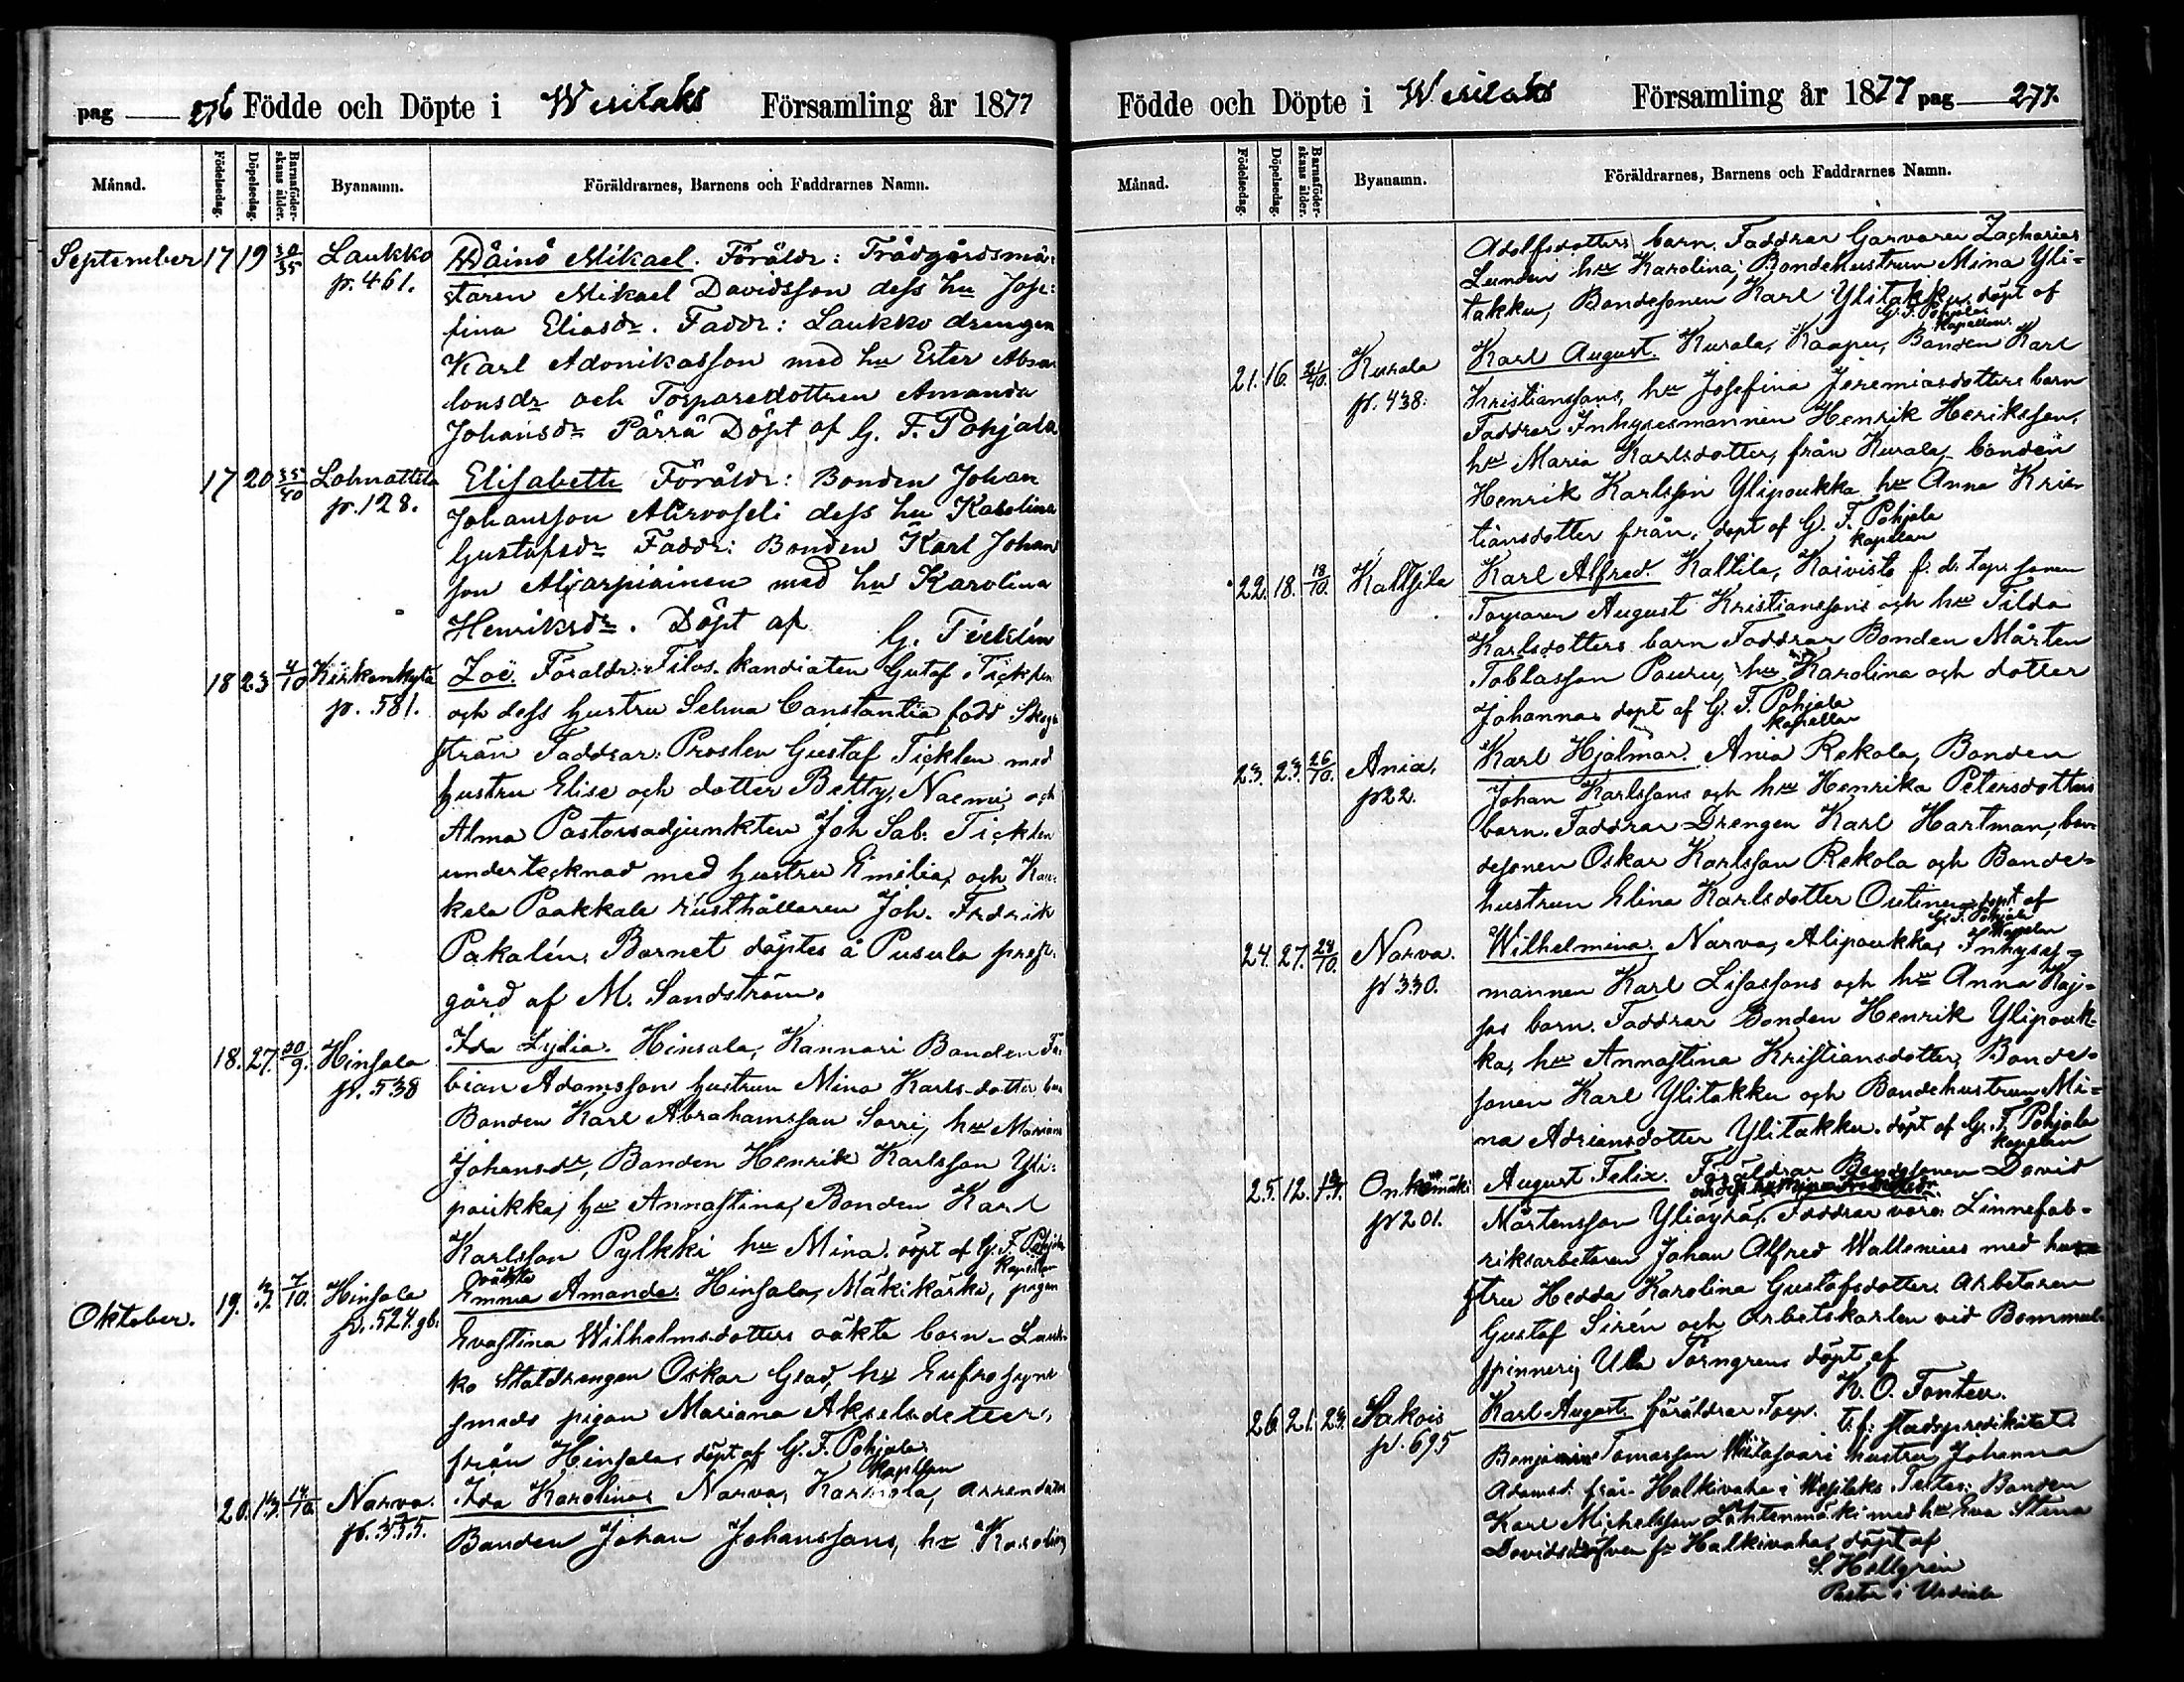 pag 276 Födde och Döpte i Wesilaks Församling år 1877
Månad. Födelsedag. Döpelsedag. Barnaföderskans ålder. Bynamn. Föräldrarnes, Barnens och Faddrarnes Namn.
September 17 19 30/35 Laukko Wäinö Mikael. Föräldr: Trädgårdsmä-
p. 461. staren Mikael Davidsson dess hu Jose-
fina Eliasdr. Faddr: Laukko drengen
Karl Adonikasson med hu Ester Absa-
lonsdr och Torparedottren Amanda
Johansdr Pärrä Döpt af G. F. Pohjala
17 20 35/40 Lohnattila Elisabeth Föräldr: Bonden Johan
p. 128. Johansson dess hu Karolina
Gustafsdr Faddr: Bonden Karl Johans
son med hu Karolina
Henriksdr. Döpt af G. Ticklén
18 23 4/10 Kirkonkylä Zoë. Föräldr: Filos. kandiaten Gustaf Ticklen
p. 581. och dess hustru Selma Constantia född Skog-
strön Faddrar: Prosten Gustaf Ticklen med
hustru Elise och dotter Betty, Naemi och
Alma Pastorsadjunkten Joh Sab. Ticklen
undertecknad med hustru Emilia, och
Paakkala rusthållaren Joh. Fredrik
Pakalén. Barnet döptes å Pusula prest-
gård af M. Sandström.
18. 27. 30/9. Hinsala Ida Lydia. Hinsala, Kannari Bonden Fa-
p. 538 bian Adamsson hustrun Mina Karls-dotter barn
Bonden Karl Abrahamsson Sorri, hu Mariana
Johansdr, Bonden Henrik Karlsson Yli-
poukka, hu Annastina, Bonden Karl
Karlsson Pylkki hu Mina. döpt af G. F. Pohjala
Kapellan
Oktober. 19. 3. 7/10. Hinsala oäkta Emma Amanda. Hinsala, Mäkikärki, pigan
p. 524. gb. Evastina Wilhelmsdotters oäkta barn. Lauk-
ko Statdrengen Oskar Glad, hu Eufrosyne
smeds pigan Mariana Akselsdotter,
från Hinsala, döpt af G. F. Pohjala
Kapellan
20. 13. 14/10. Narva. Ida Karolina Narva, arrendator
p. 355. Bonden Johan Johanssons, hu Karolina
Födde och Döpte i Wesilaks Församling år 1877 pag 277.
Månad. Födelsedag. Döpelsedag. Barnaföderskans ålder. Bynamn. Föräldrarnes, Barnens och Faddrarnes Namn.
Adolfsdotters barn. Faddrar Garvaren Zacharias
Lunden hu Karolina; Bondehustrun Mina Yli-
takku, Bondesonen Karl Ylitakku döpt af
G. F. Pohjala
Kapellan
21. 16. 21/40. Kurala Karl August. Kurala, Kaapu, Bonden Karl
p. 438. Kristianssons, hu Josefina Jeremiasdotters barn
Faddrar Inhysesmannen Henrik Henriksson,
hu Maria Karlsdotter, från Kurala, bonden
Henrik Karlsson Ylipoukka hu Anna Kris-
tiansdotter från, döpt af G. F. Pohjala
Kapellan
22. 18. 18/10. Kaltsila Karl Alfred. Kaltila, Koivisto f. d. top. sonen
Torparen August Kristianssons och hu Tilda
Karlsdotters barn Faddrar Bonden Mårten
Tobiasson Pouru, hu Karolina och dotter
Johanna, döpt af G. F. Pohjala
Kapellan
23. 23. 26/10. Ania, Karl Hjalmar. Ania Rekola, Bonden
p 22. Johan Karlssons och hu Henrika Petersdotters
barn. Faddrar Drengen Karl Hartman, bon-
desonen Oskar Karlsson Rekola och Bonde-
hustrun Elina Karlsdotter Outinen döpt af
G. F. Pohjala
Kapellan
24. 27. 28/10. Narva. Wilhelmina. Narva, Alipoukka, Inhyses-
p 330. mannen Karl Lisassons och hu Anna Kaj-
sas barn. Faddrar Bonden Henrik Ylipouk-
ka, hu Annastina Kristiansdotter, Bonde-
sonen Karl Ylitakku och Bondehustrun Mi-
na Adriansdotter Ylitakku. döpt af G. F. Pohjala
Kapellan
25. 12. Onkemäki August Felix. Föräldrar Bondesonen David
p 201. Mårtensson Yliäyrä, Faddrar voro: Linnefab-
riksarbetaren Johan Alfred Wallenius med hu-
stru Hedda Karolina Gustafsdotter Arbetaren
Gustaf Sirén och Arbetskarlen vid Bommuls-
spinneri Ulla Törngren döpt af
K. O. Fonten.
t. f. stadspredikator
26. 21. 23. Sakois Karl August, föräldrar Torp.
p. 695 Benjamin Tomasson hustru Johanna
Adamsd. från Halkivaha i Wesilaks. Testes: Bonden
Karl Michelsson Lähtenmäki med hu Eva Stina
fr Halkivaha, döpt af
S. Hellgrén
Pastor i Urdiala